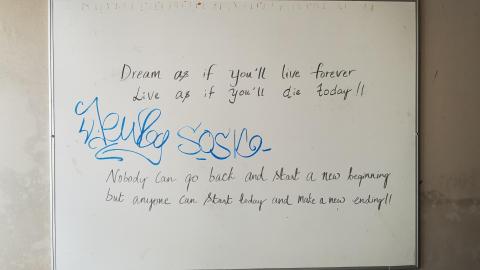 Dream as if you'll live forever
Live as if you'll die today!!
Nobody can go back and start a new beginning
but anyone can start today and make a new ending!!